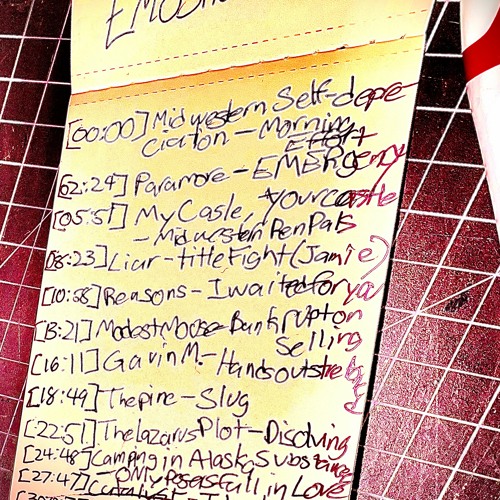 [00:00] Midwestern Self-depre-
ciation - Morning
Effort
[02:24] Paramore - EMERgency
[05:51] My Casle, your castle
- Midwestern Pen Pals
[08:23] Liar - title Fight (Jamie)
[10:58] Reasons - I waited for ya
[13:21] Modest Moose - Bankrupt on
Selling
[16:11] Gavin M. - Hands outstre
[18:49] The pine - Slug
[22:51] The lazarus Plot - Disolving
[24:48] Camping in Alaska Substance
[27:47] ONLY Poseas fall in Love